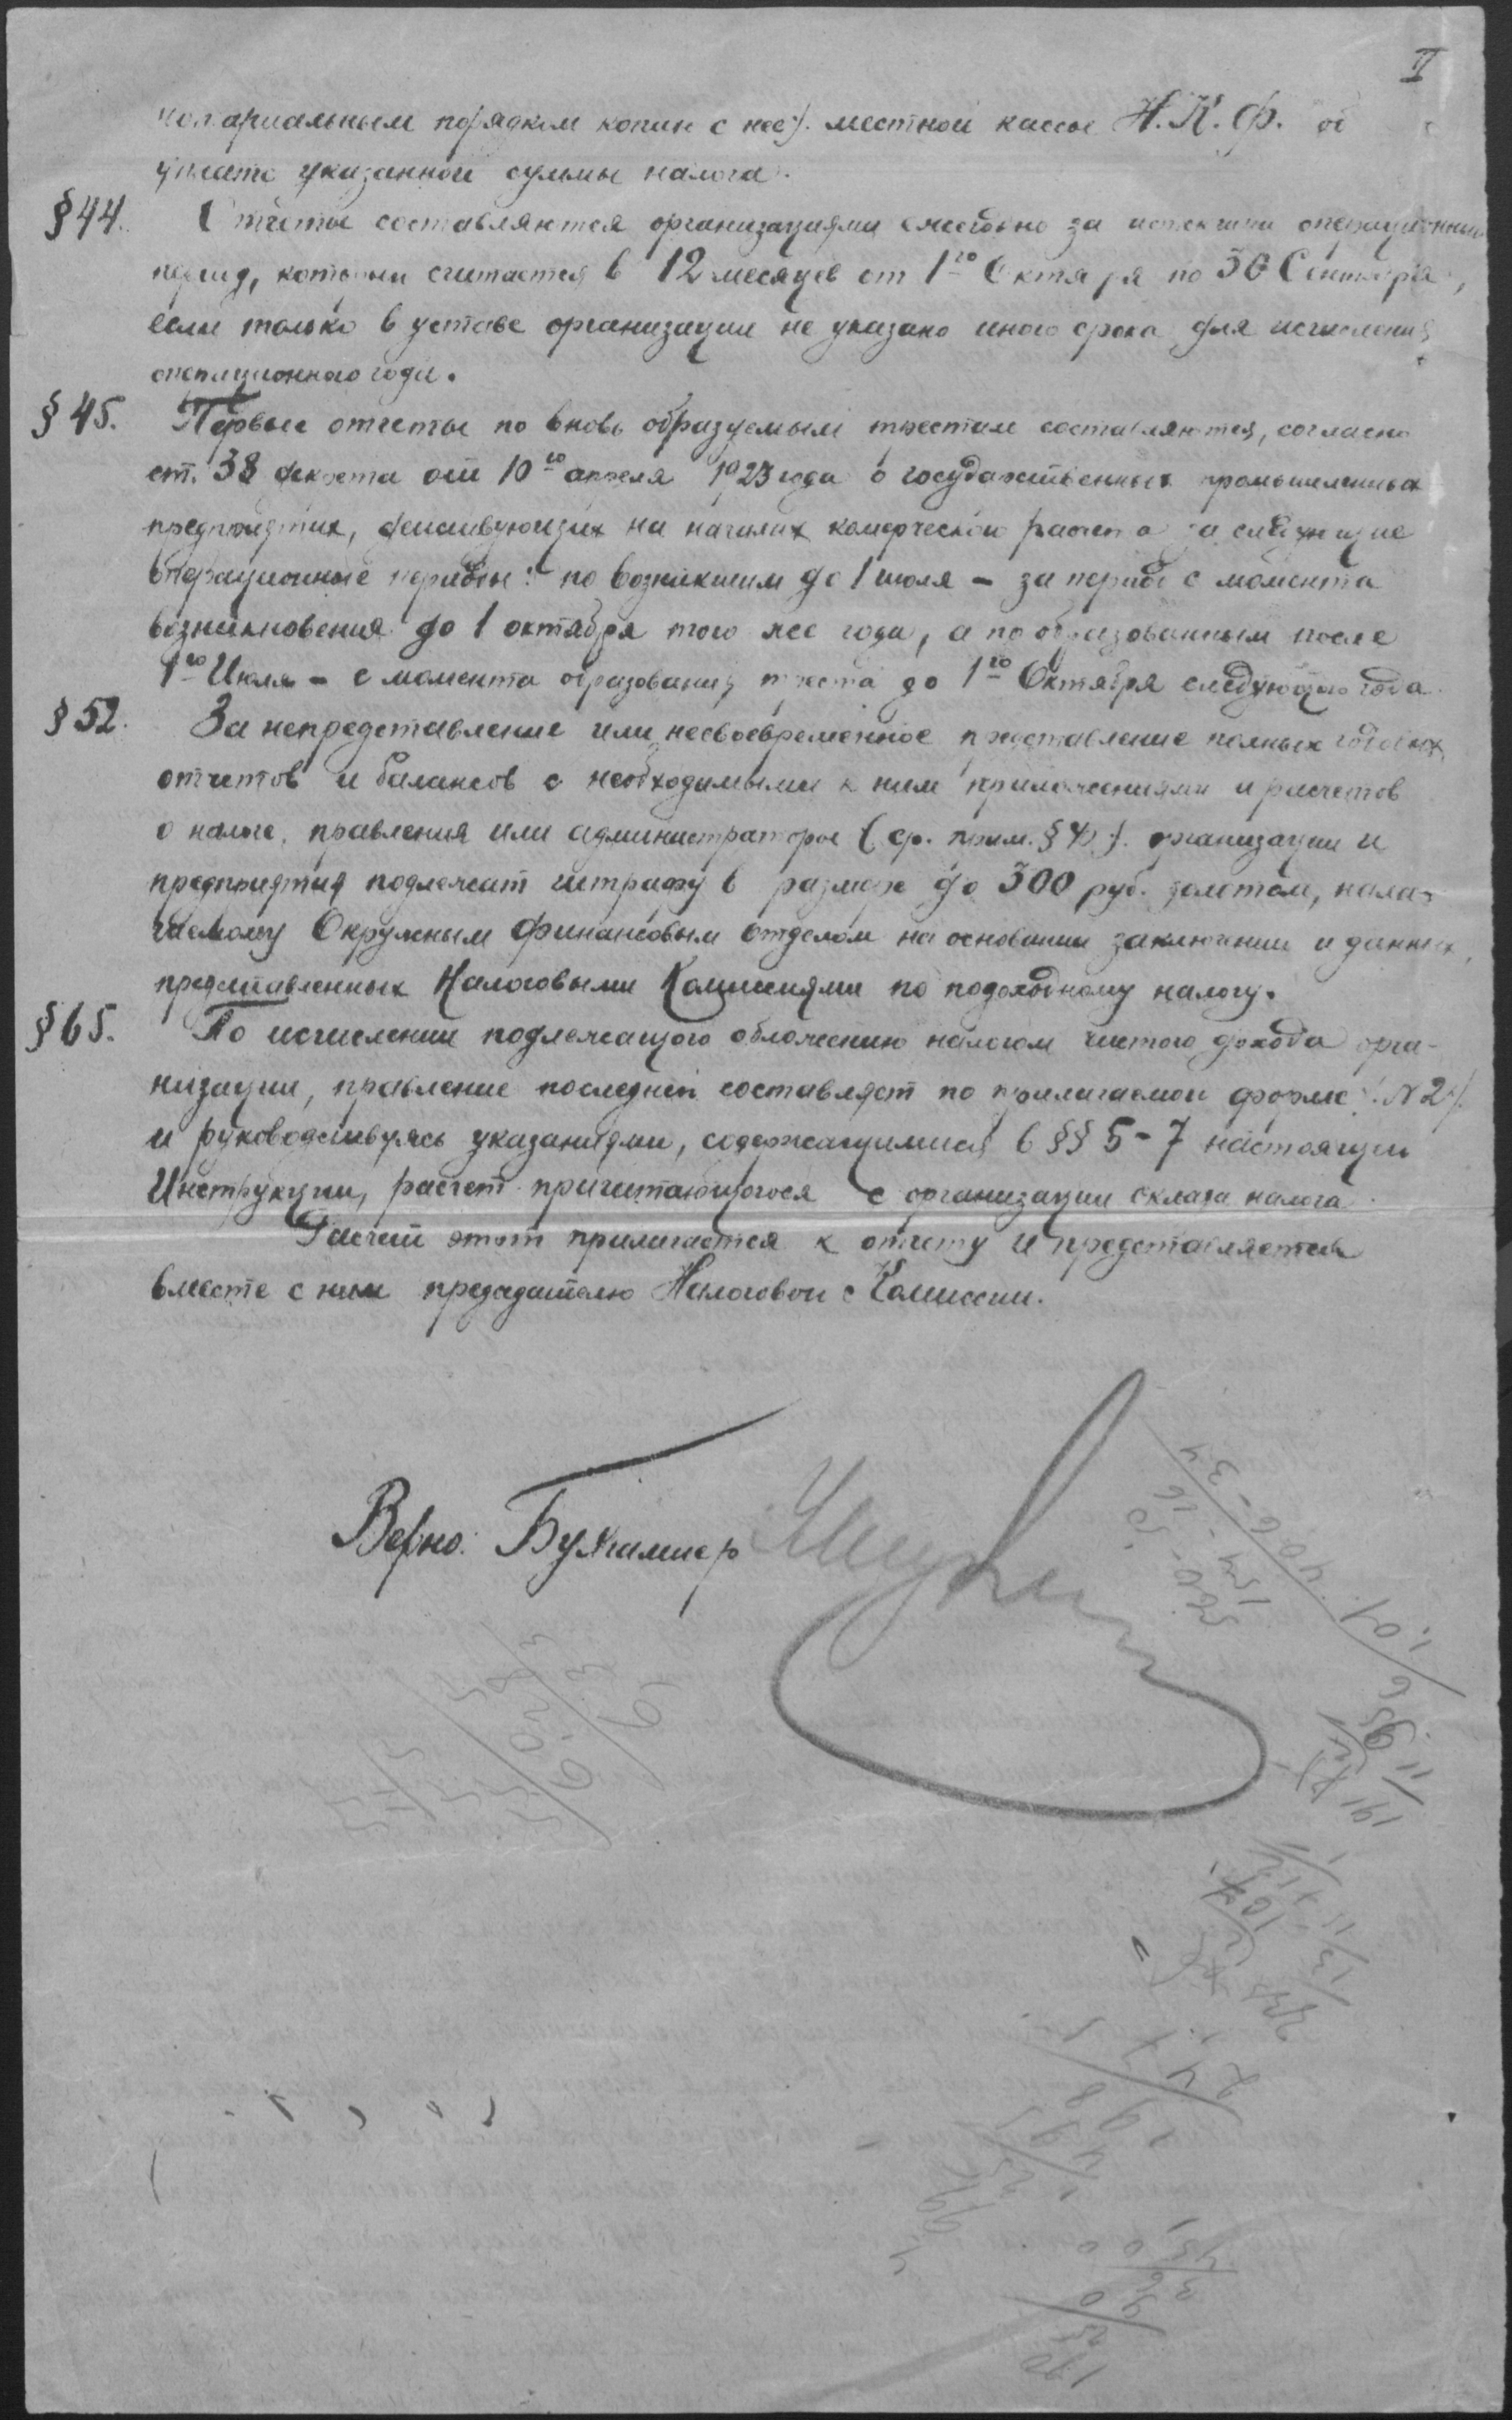 II
нотариальным порядком копии с нее/. местной кассы Н.К.Ф. об
уплате указанной суммы налога.
§44. Отчеты составляются организациями ежегодно за истекший операционный
период, который считается в 12 месяцев от 1го Октября по 30 Сентября,
если только в уставе организации не указано иного срока для исчисления
операционного года.
§45. Первые отчеты по вновь образуемым трестам составляются, согласно
ст. 38 декрета от 10го апреля 1923 года о государственных промышленных
предприятиях, действующих на началах комерческого расчета за следующие
операционные периоды: по возникшим до 1 июля – за период с момента
возникновения до 1 октября того же года, а по образованным после
1го Июля – с момента образования треста до 1го Октября следующего года.
§52. За непредставление или несвоевременное представление полных годовых
отчетов и балансов с необходимыми к ним приложениями и расчетов
о налоге, правления или администраторы (ср. прим. §4)/. организации и
предприятия подлежат штрафу в размере до 300 руб. золотом, нала-
гаемому Окружным Финансовым отделом на основании заключении и данных,
представленных Налоговыми Комиссиями по подоходному налогу.
§65. По исчислении подлежащего обложению налогом чистого дохода орга-
низации, правление последней составляет по прилагаемой форме /. N 2/.
и руководствуясь указаниями, содержащимися в §§ 5-7 настоящей
Инструкции, расчет причитающегося с организации оклада налога.
Расчет этот прилагается к отчету и представляется
вместе с ним председателю Налоговой Комиссии.
Верно: Бухгалтер